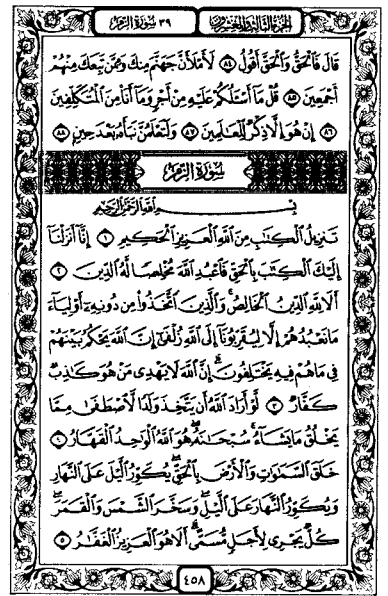 الجزء الثالث والعشرون
٣٩ سورة الزمر
قَالَ فَالْحَقُّ وَالْحَقَّ أَقُولُ ٨٤ لَأَمْلَأَنَّ جَهَنَّمَ مِنكَ وَمِمَّن تَبِعَكَ مِنْهُمْ
أَجْمَعِينَ ٨٥ قُلْ مَا أَسْـَٔلُكُمْ عَلَيْهِ مِنْ أَجْرٍ وَمَا أَنَا مِنَ الْمُتَكَلِّفِينَ
٨٦ إِنْ هُوَ إِلَّا ذِكْرٌ لِّلْعَالَمِينَ ٨٧ وَلَتَعْلَمُنَّ نَبَأَهُ بَعْدَ حِينٍ ٨٨
سورة الزمر
بِسْمِ اللَّهِ الرَّحْمَٰنِ الرَّحِيمِ
تَنزِيلُ الْكِتَٰبِ مِنَ اللَّهِ الْعَزِيزِ الْحَكِيمِ ١ إِنَّا أَنزَلْنَا
إِلَيْكَ الْكِتَٰبَ بِالْحَقِّ فَاعْبُدِ اللَّهَ مُخْلِصًا لَّهُ الدِّينَ ٢
أَلَا لِلَّهِ الدِّينُ الْخَالِصُ وَالَّذِينَ اتَّخَذُوا مِن دُونِهِ أَوْلِيَاءَ
مَا نَعْبُدُهُمْ إِلَّا لِيُقَرِّبُونَا إِلَى اللَّهِ زُلْفَىٰ إِنَّ اللَّهَ يَحْكُمُ بَيْنَهُمْ
فِي مَا هُمْ فِيهِ يَخْتَلِفُونَ إِنَّ اللَّهَ لَا يَهْدِي مَنْ هُوَ كَٰذِبٌ
كَفَّارٌ ٣ لَّوْ أَرَادَ اللَّهُ أَن يَتَّخِذَ وَلَدًا لَّاصْطَفَىٰ مِمَّا
يَخْلُقُ مَا يَشَاءُ سُبْحَٰنَهُ هُوَ اللَّهُ الْوَٰحِدُ الْقَهَّارُ ٤
خَلَقَ السَّمَٰوَٰتِ وَالْأَرْضَ بِالْحَقِّ يُكَوِّرُ الَّيْلَ عَلَى النَّهَارِ
وَيُكَوِّرُ النَّهَارَ عَلَى الَّيْلِ وَسَخَّرَ الشَّمْسَ وَالْقَمَرَ
كُلٌّ يَجْرِي لِأَجَلٍ مُّسَمًّى أَلَا هُوَ الْعَزِيزُ الْغَفَّارُ ٥
٤٥٨